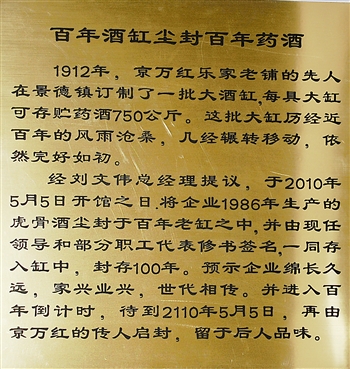 百年酒缸尘封百年药酒
1912年，京万红乐家老铺的先人
在景德镇订制了一批大酒缸,每具大缸
可存贮药酒750公斤。这批大缸历经近
百年的风雨沧桑，几经辗转移动，依
然完好如初。
经刘文伟总经理提议，于2010年
5月5日开馆之日,将企业1986年生产的
虎骨酒尘封于百年老缸之中,并由现任
领导和部分职工代表修书签名,一同存
入缸中，封存100年。预示企业绵长久
远，家兴业兴，世代相传。并进入百
年倒计时，待到2110年5月5日，再由
京万红的传人启封，留于后人品味。